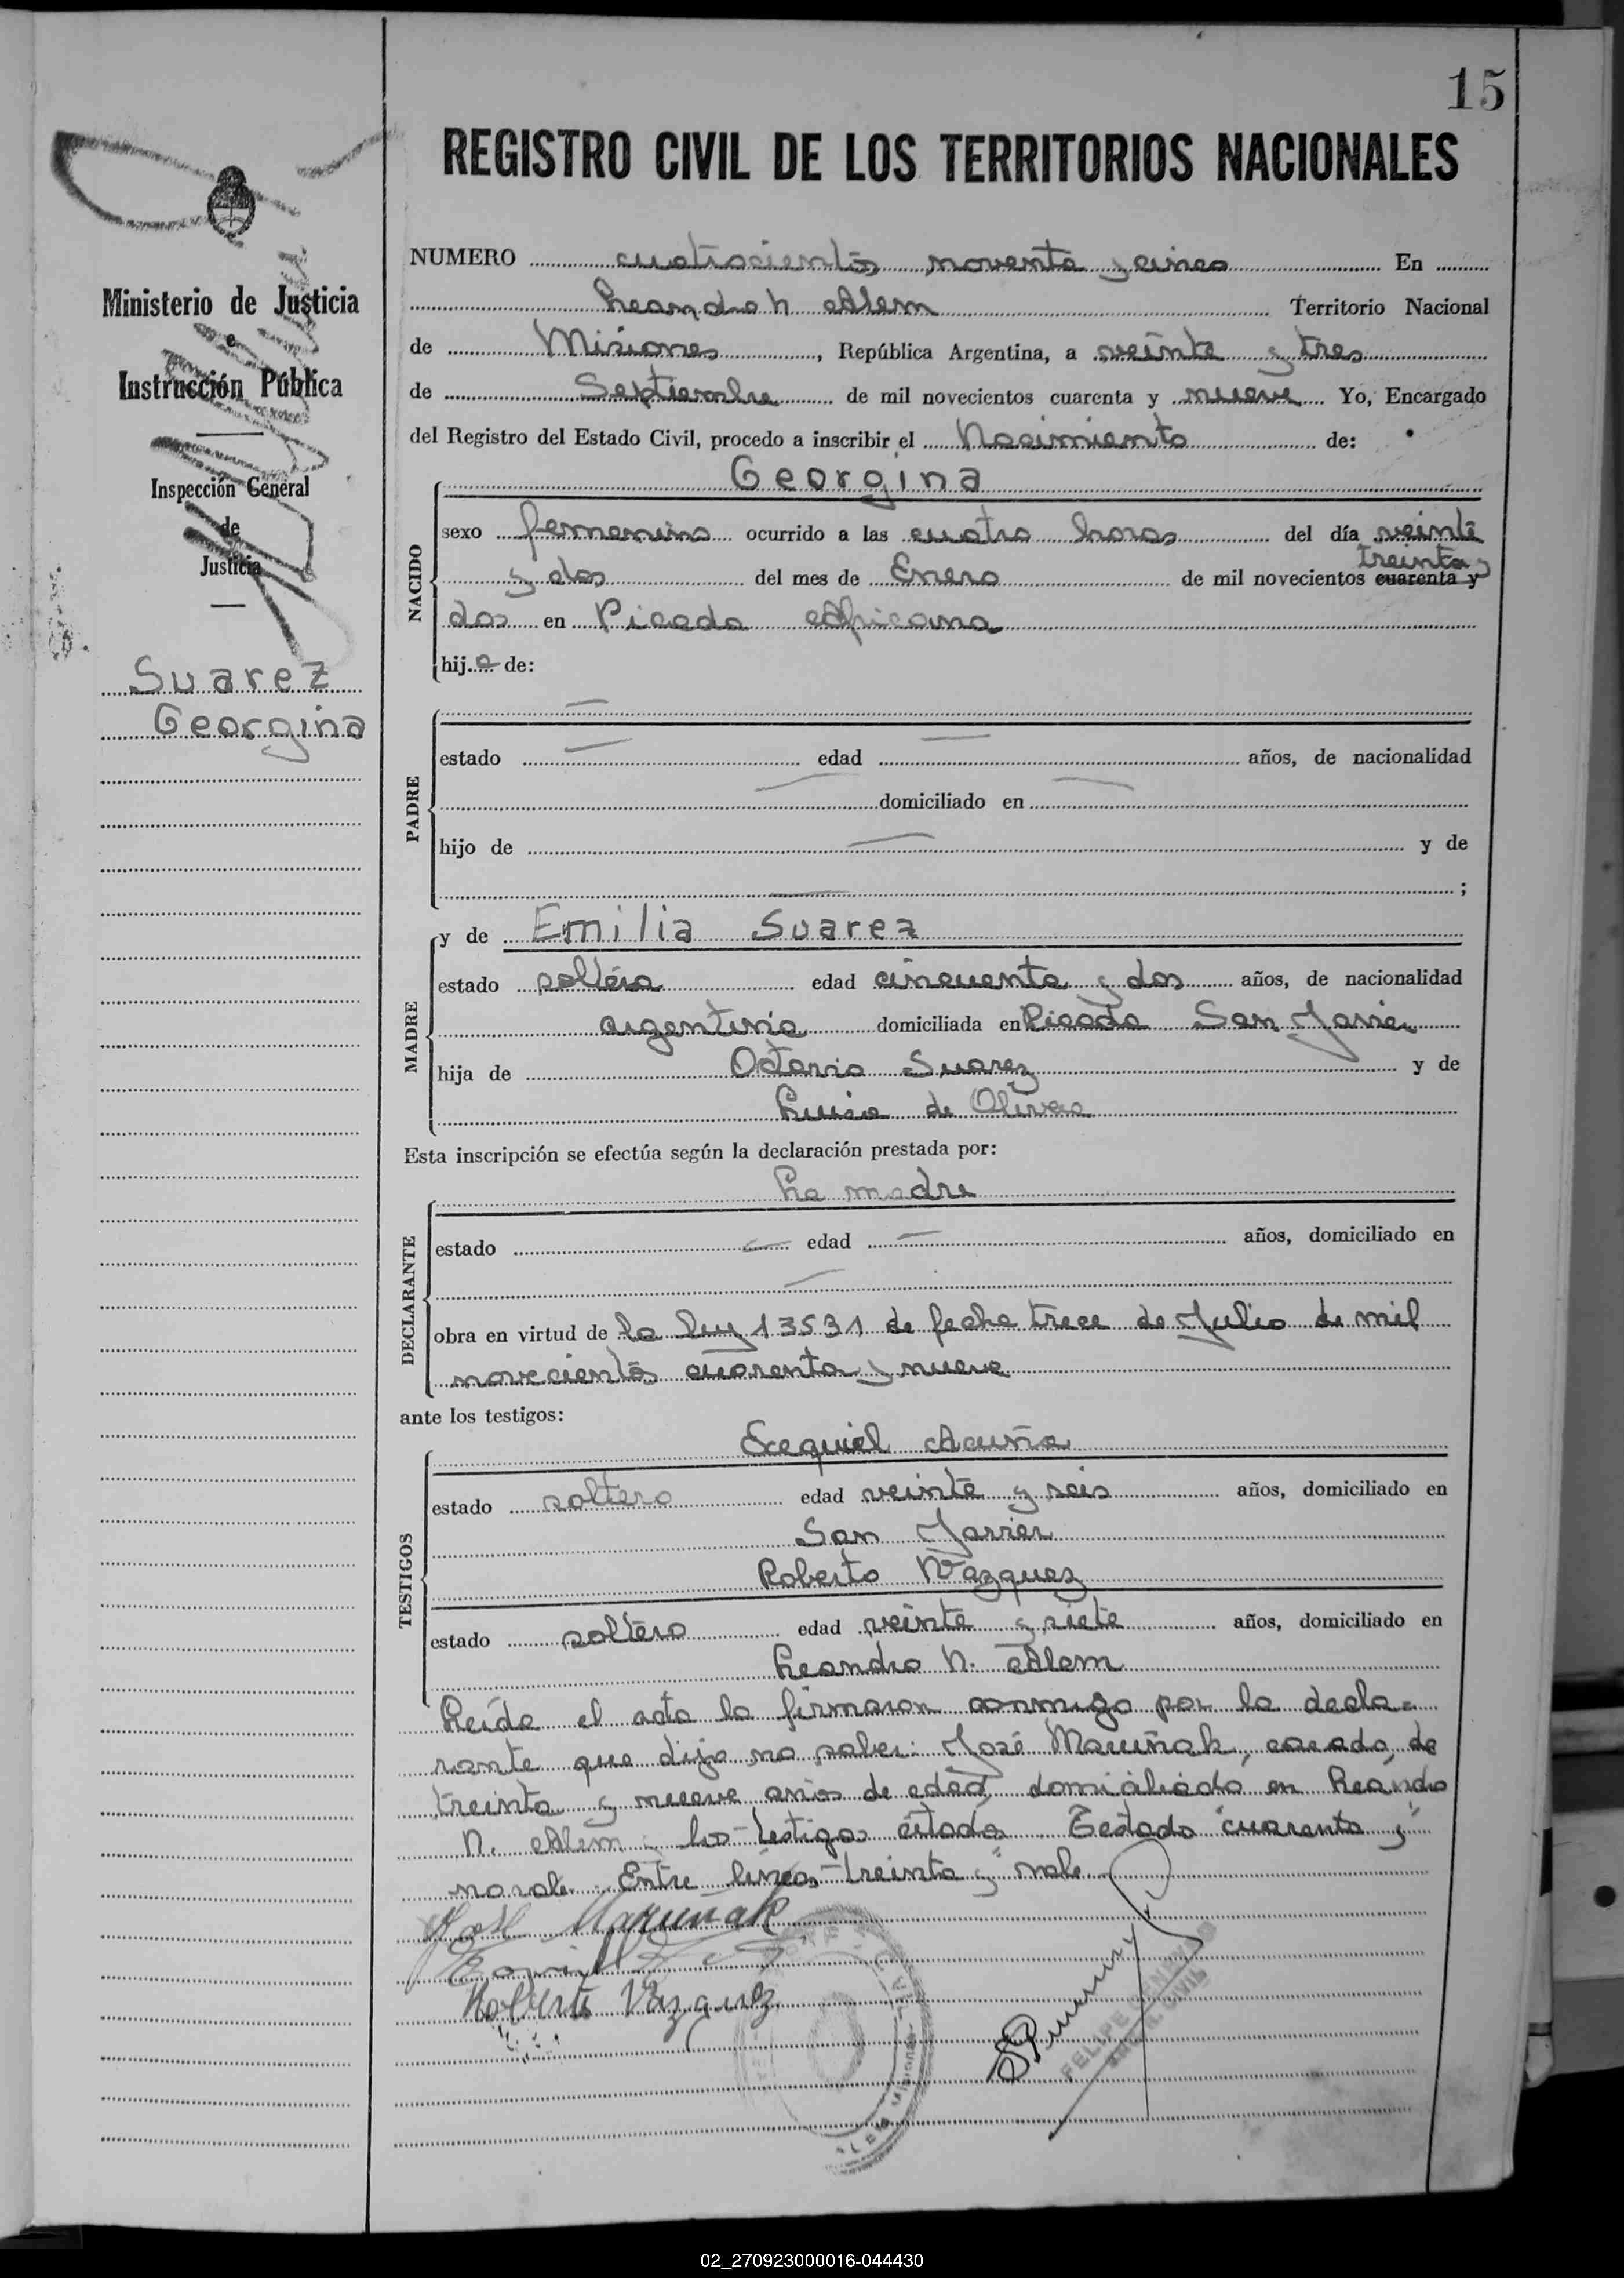 15
REGISTRO CIVIL DE LOS TERRITORIOS NACIONALES
Ministerio de Justicia
e
Instrucción Pública
Inspección General
de
Justicia
Suarez
Georgina
NUMERO cuatrocientos noventa y cinco En
Leandro N Alem Territorio Nacional
de Misiones, República Argentina, a veinte y tres
de Septiembre de mil novecientos cuarenta y nueve Yo, Encargado
del Registro del Estado Civil, procedo a inscribir el Nacimiento de:
Georgina
NACIDO
sexo femenino ocurrido a las cuatro horas del día veinte
treinta y
y dos del mes de Enero de mil novecientos cuarenta y
dos en Picada Africana
hija de:
PADRE
estado — edad — años, de nacionalidad
— domiciliado en —
hijo de — y de
— ;
MADRE
y de Emilia Suarez
estado soltera edad cincuenta y dos años, de nacionalidad
argentina domiciliada en Picada San Javier
hija de Octavio Suarez y de
Luisa de Olivera
Esta inscripción se efectúa según la declaración prestada por:
La madre
DECLARANTE
estado — edad — años, domiciliado en
—
obra en virtud de la ley 13531 de fecha trece de Julio de mil
novecientos cuarenta y nueve
ante los testigos:
TESTIGOS
Exequiel Acuña
estado soltero edad veinte y seis años, domiciliado en
San Javier
Roberto Vazquez
estado soltero edad veinte y siete años, domiciliado en
Leandro N. Alem
Leída el acta la firmaron conmigo por la decla=
rante que dijo no saber: José Mazuñak, casado, de
treinta y nueve años de edad, domiciliado en Leandro
N. Alem; los testigos citados. Testado "cuarenta y"
no vale. Entre líneas "treinta y" vale.
José Mazuñak
Roberto Vazquez
FELIPE
CIVIL
02_270923000016-044430